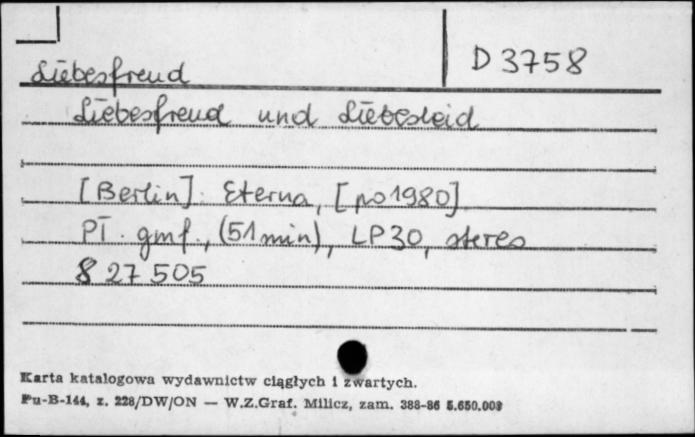 D 3758
Liebesfreud
Liebesfreud und Liebesleid
[Berlin] : Eterna, [po 1980]
Pł. gmf., (51 min), LP30, stereo
8 27 505
Karta katalogowa wydawnictw ciągłych i zwartych.
Pu-B-144, z. 228/DW/ON — W.Z.Graf. Milicz, zam. 388-86 5.650.000